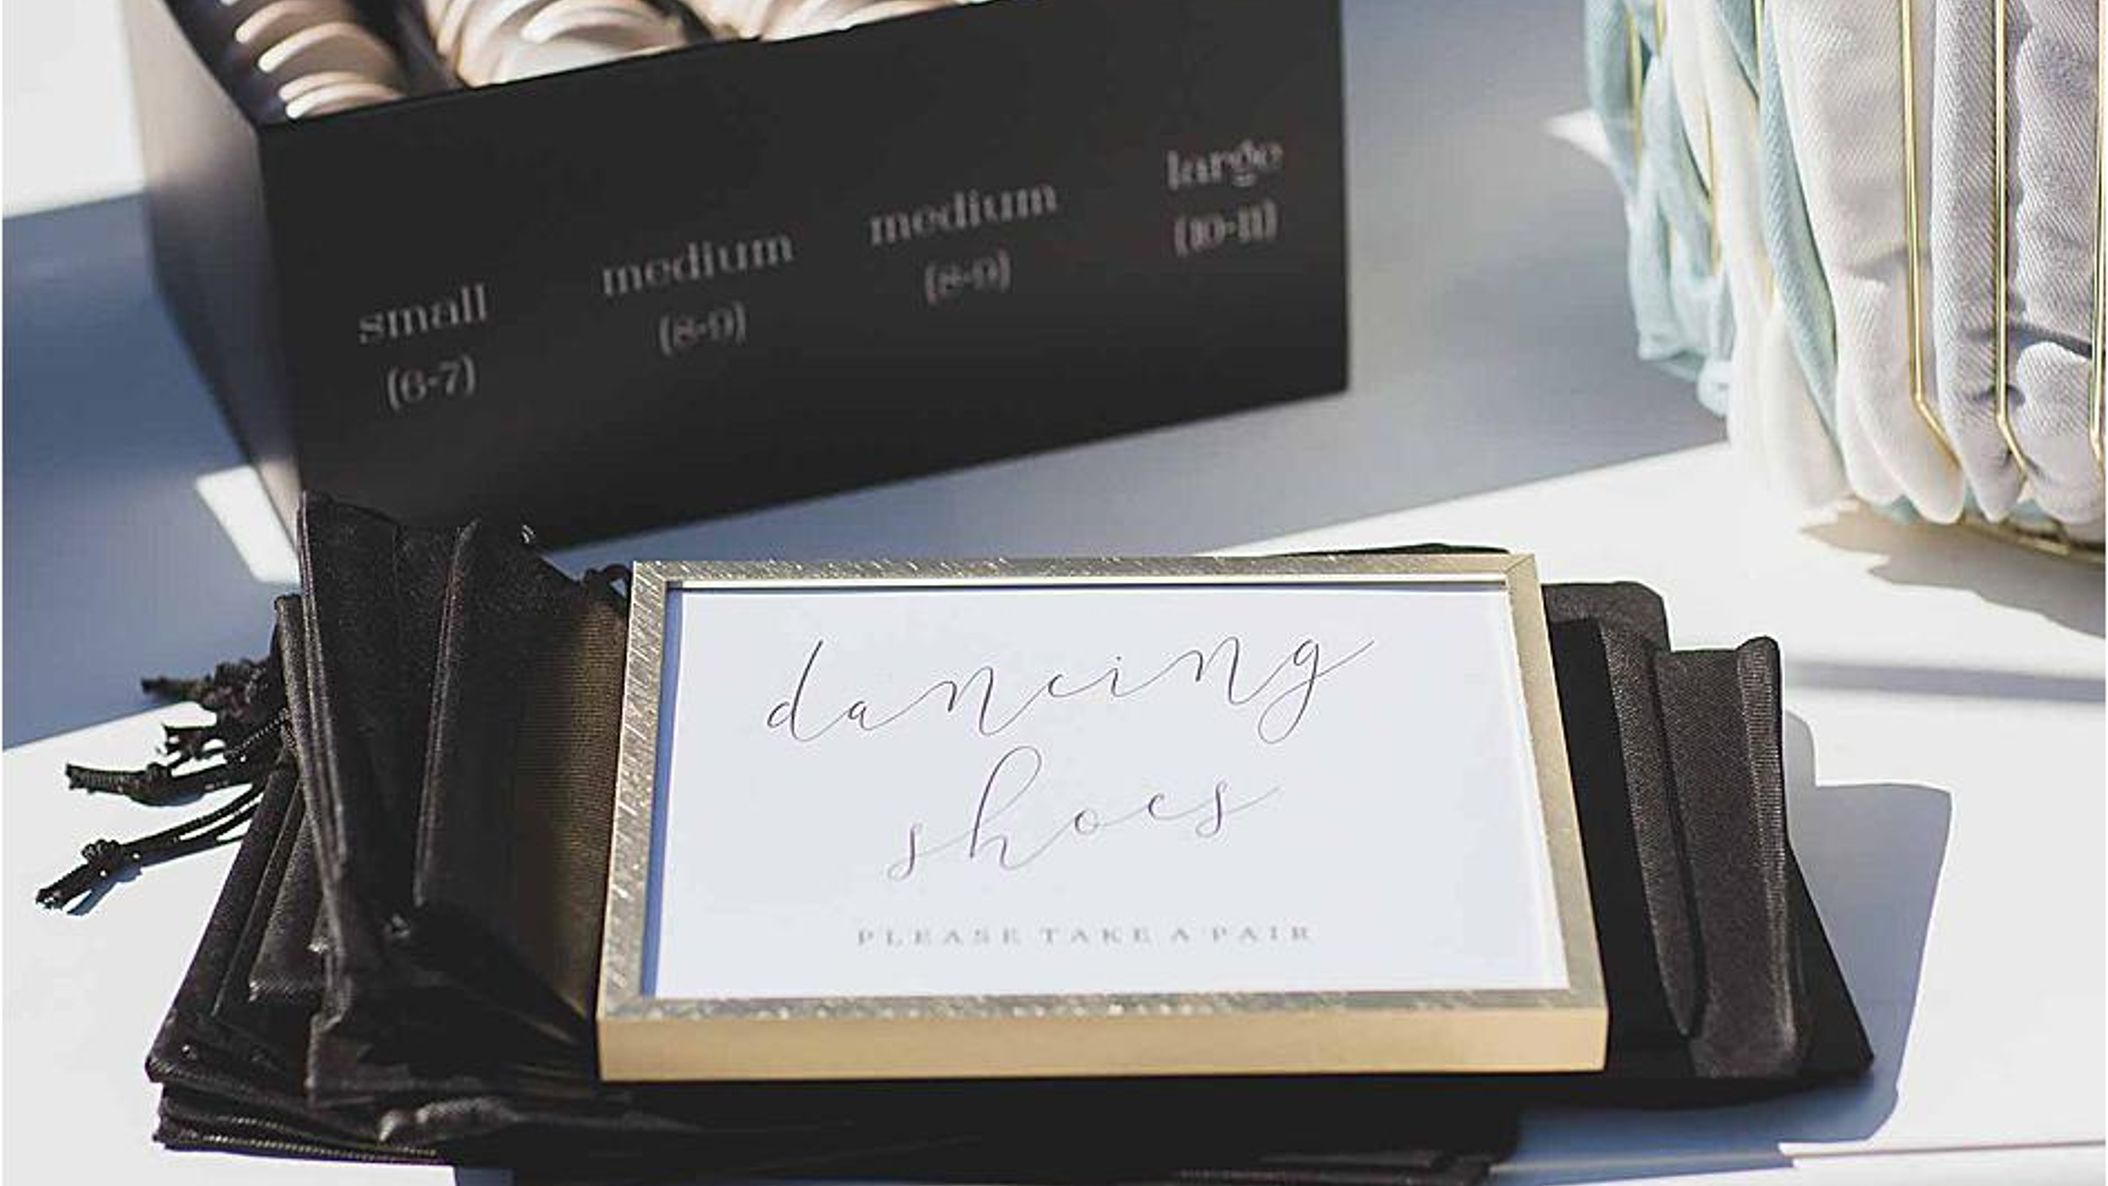 small
(6-7)
medium
(8-9)
medium
(8-9)
large
(10-11)
dancing
shoes
PLEASE TAKE A PAIR